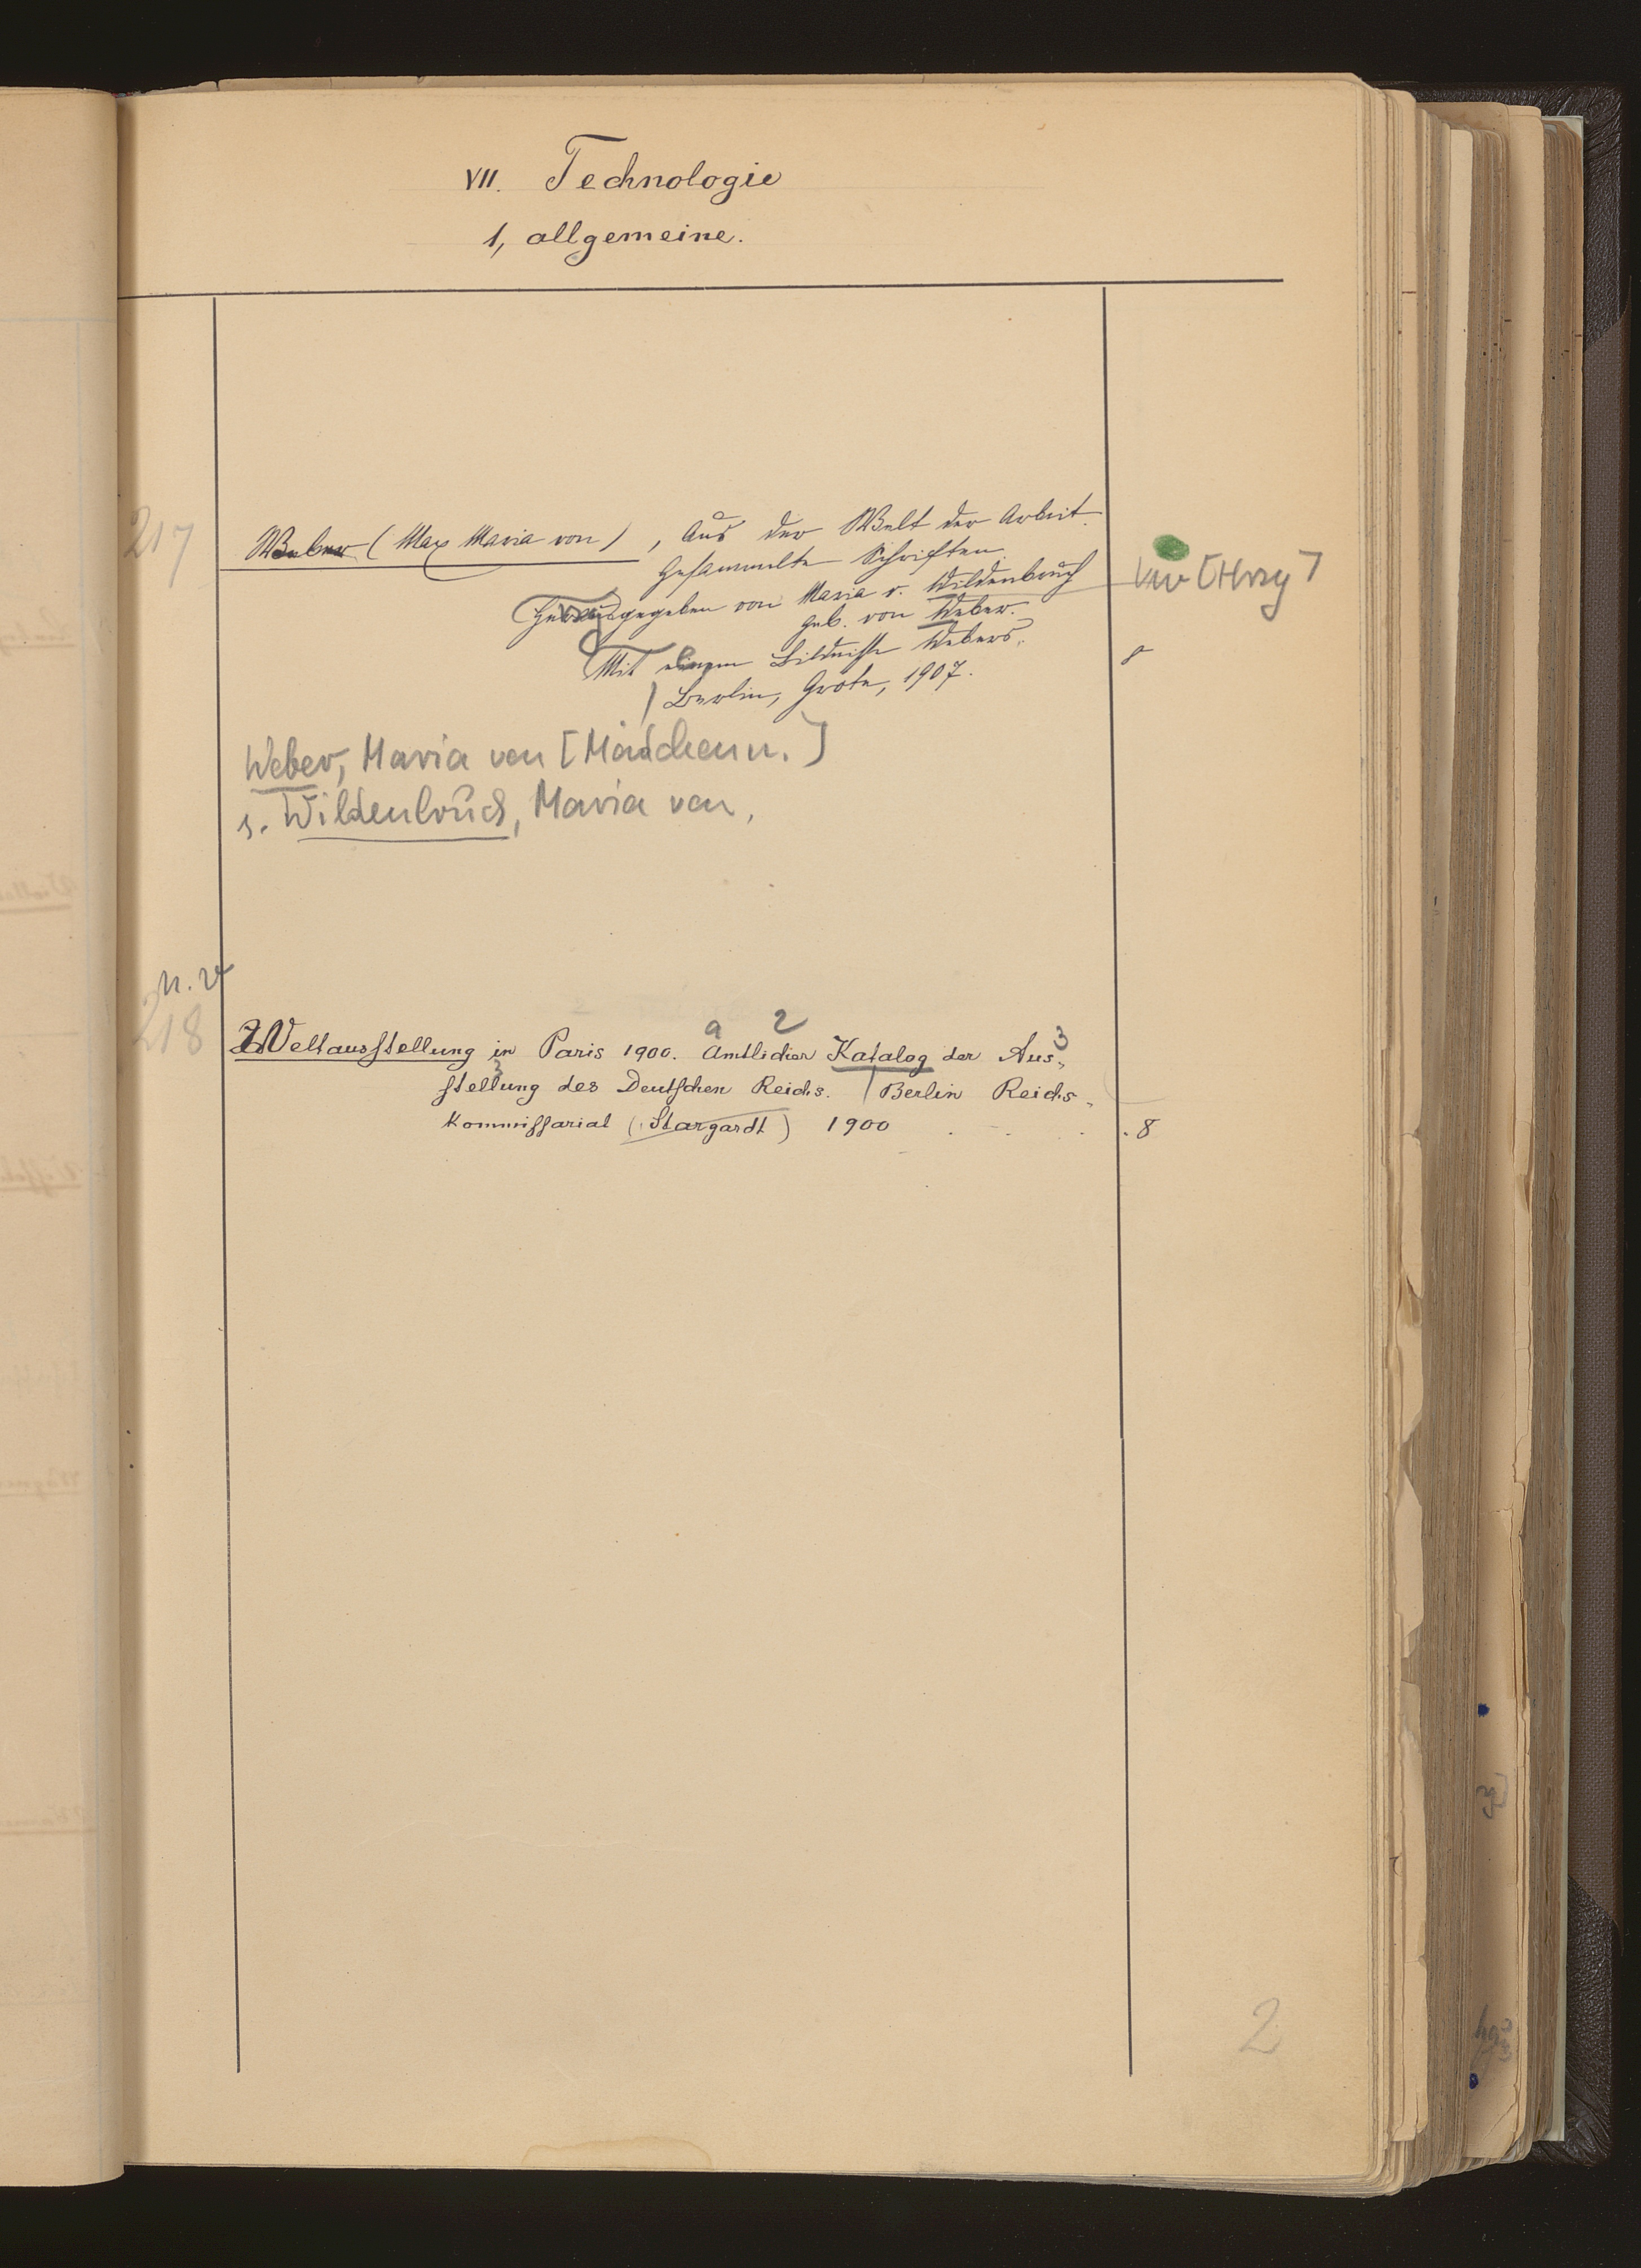 VII. Technologie
1, allgemeine.
217
Weber (Max Maria von), Aus der Welt der Arbeit.
Gesammelte Schriften.
Herausgegeben von Maria v. Wildenbruch
geb. von Weber.
Mit einem Bildnisse Webers.
Berlin, Grote, 1907.
8
Weber, Maria von [Mädchenn.]
s. Wildenbruch, Maria von,
218
Weltausstellung in Paris 1900. Amtlicher Katalog der Aus-
a 2 3
stellung des Deutschen Reichs. / Berlin Reichs-
Kommissariat (Stargardt) 1900 . . . . 8
2